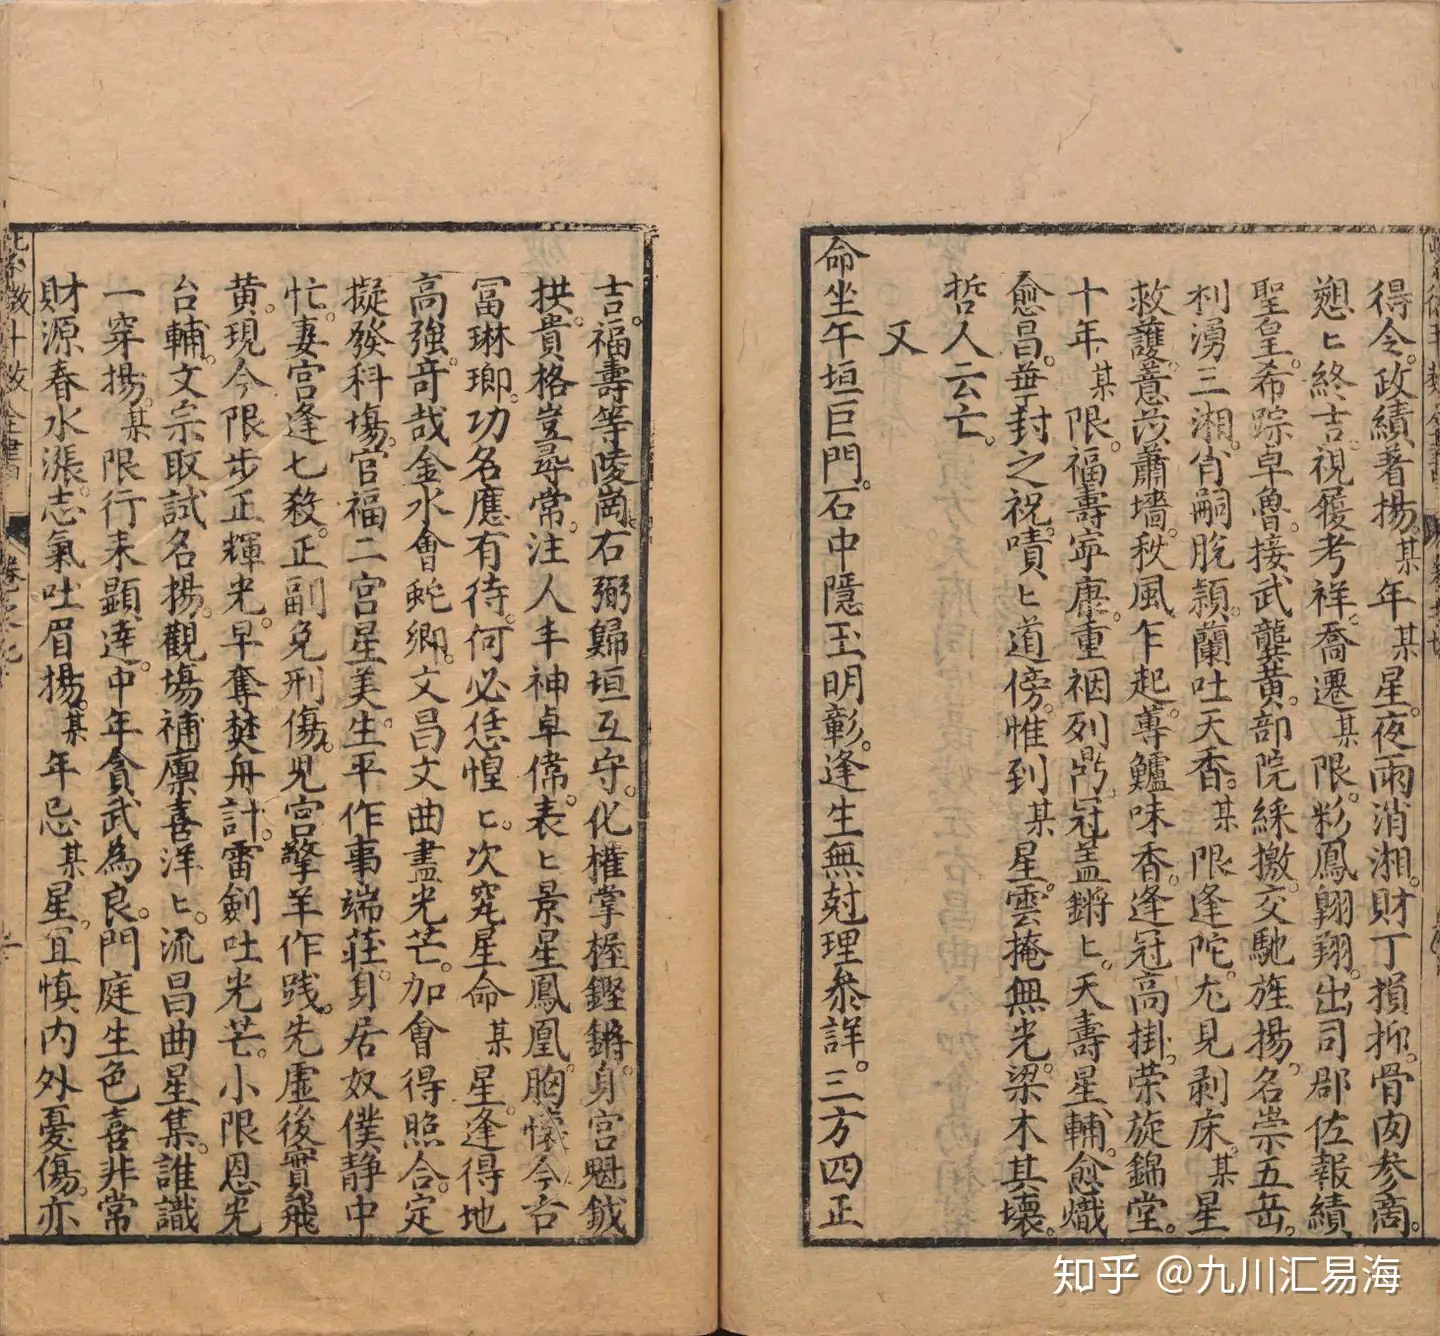 得令。政績著揚。某年某星。夜雨消湘。財丁損抑。骨肉参商。
愬〻終吉。視履考祥。喬遷某限。彩鳳翺翔。出司郡佐報績
聖皇。希踪卓魯。接武龔黄。部院綵撽。交馳旌揚。名崇五岳。
利湧三湘。肖嗣脫穎。蘭吐天香。某限逢陀。尢見剥床。某星
救護。薏苡蕭墙。秋風乍起。蓴鱸味香。逢冠高掛。荣旋錦堂。
十年某限。福壽寜康。重裀列鼎。冠盖鏘〻。天壽星輔。愈熾
愈昌。華封之祝。嘖〻道傍。惟到某星。雲掩無光。梁木其壊。
哲人云亡。
又
命坐午垣巨門。石中隱玉明彰。逢生無尅理叅詳。三方四正
吉。福壽等陵崗。右弼歸垣互守。化權掌握鏗鏘。身宫魁鉞
拱。貴格豈尋常。注人丰神卓偉。表〻景星鳳凰。胸懐今古
冨琳瑯。功名應有待。何必恁惶〻。次究星命某星。逢得地
高強。竒哉金水會蛇鄉。文昌文曲盡光芒。加會得照合。定
擬發科塲。官福二宫星美。生平作事端莊。身居奴僕静中
忙。妻宫逢七殺。正副免刑傷。児宫擎羊作践。先虚後實飛
黄。現今限步正輝光。早奪焚舟計。雷劍吐光芒。小限恩光
台輔。文宗取試名揚。觀塲補廪喜洋〻。流昌曲星集。誰識
一穿揚。某限行来顯達。中年貪武為良。門庭生色喜非常
財源春水漲。志氣吐眉揚。某年忌某星。冝慎内外憂傷。亦